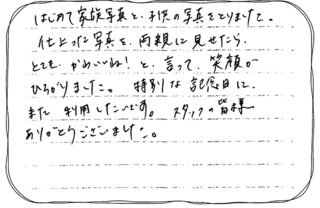 はじめて家族写真と、子供の写真をとりました。
仕上った写真を、両親に見せたら、
とても かわいいね！と、言って、笑顔が
ひろがりました。特別な記念日に、
また 利用したいです。スタッフの皆様
ありがとうございました。